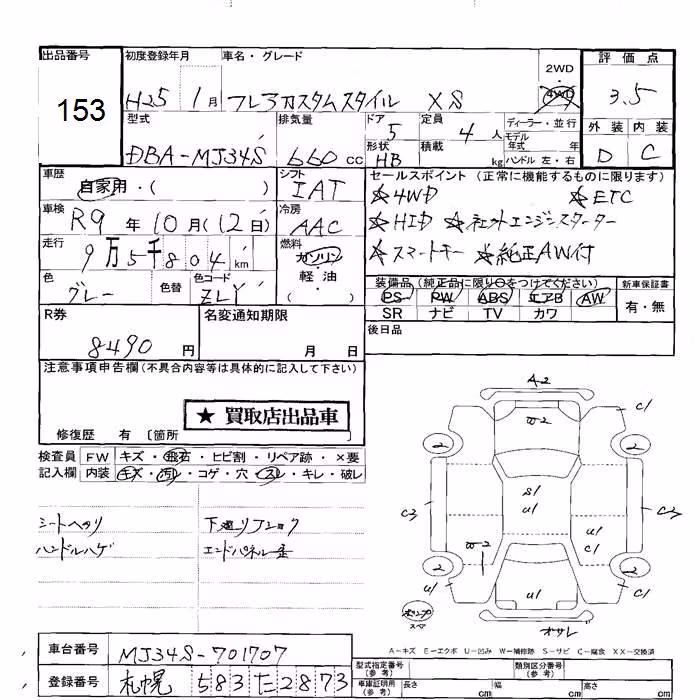 出品番号 153
初度登録年月 H25 1月
車名・グレード フレアカスタムスタイル XS
2WD・4WD
評価点 3.5
外装 内装
D C
型式 DBA-MJ34S
排気量 660 cc
ドア 5
形状 HB
定員 4人
積載 kg
ディーラー・並行
モデル年式 年式
ハンドル 左・右
車歴 自家用・( )
シフト IAT
車検 R9年10月(12日)
冷房 AAC
走行 9万5千804km
燃料 ガソリン・軽油・( )
色 グレー
色替
色コード ZLY
セールスポイント (正常に機能するものに限ります)
☆4WD ☆ETC
☆HID ☆社外エンジンスターター
☆スマートキー ☆純正AW付
装備品(純正品に限り○をつけてください)
PS PW ABS エアB AW
SR ナビ TV カワ
新車保証書
有・無
R券 8490円
名変通知期限 月 日
後日品
注意事項申告欄(不具合内容等は具体的に記入して下さい)
★ 買取店出品車
修復歴 有 〔箇所
検査員記入欄
FW キズ・飛石・ヒビ割・リペア跡・×要
内装 キズ・汚れ・コゲ・穴・スレ・キレ・破レ
シートヘタリ 下廻りフック
ハンドルハゲ エンドパネル歪
A2
W2
C1
2 2
S1
U1
C3 C3
U1
U1
C1
W2
2 2
U1 U1
C1
ポンプ
スペア
オサレ
A-キズ E-エクボ U-凹み W-補修跡 S-サビ C-腐食 XX-交換済
車台番号 MJ34S-701707
登録番号 札幌 583 た 2873
型式指定番号(参考)
類別区分番号(参考)
車庫証明用(参考) 長さ cm 幅 cm 高さ cm